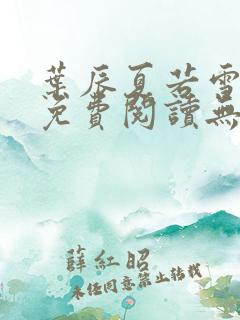 葉辰夏若雪
免費閱讀無
薛紅昭
未經同意禁止轉載